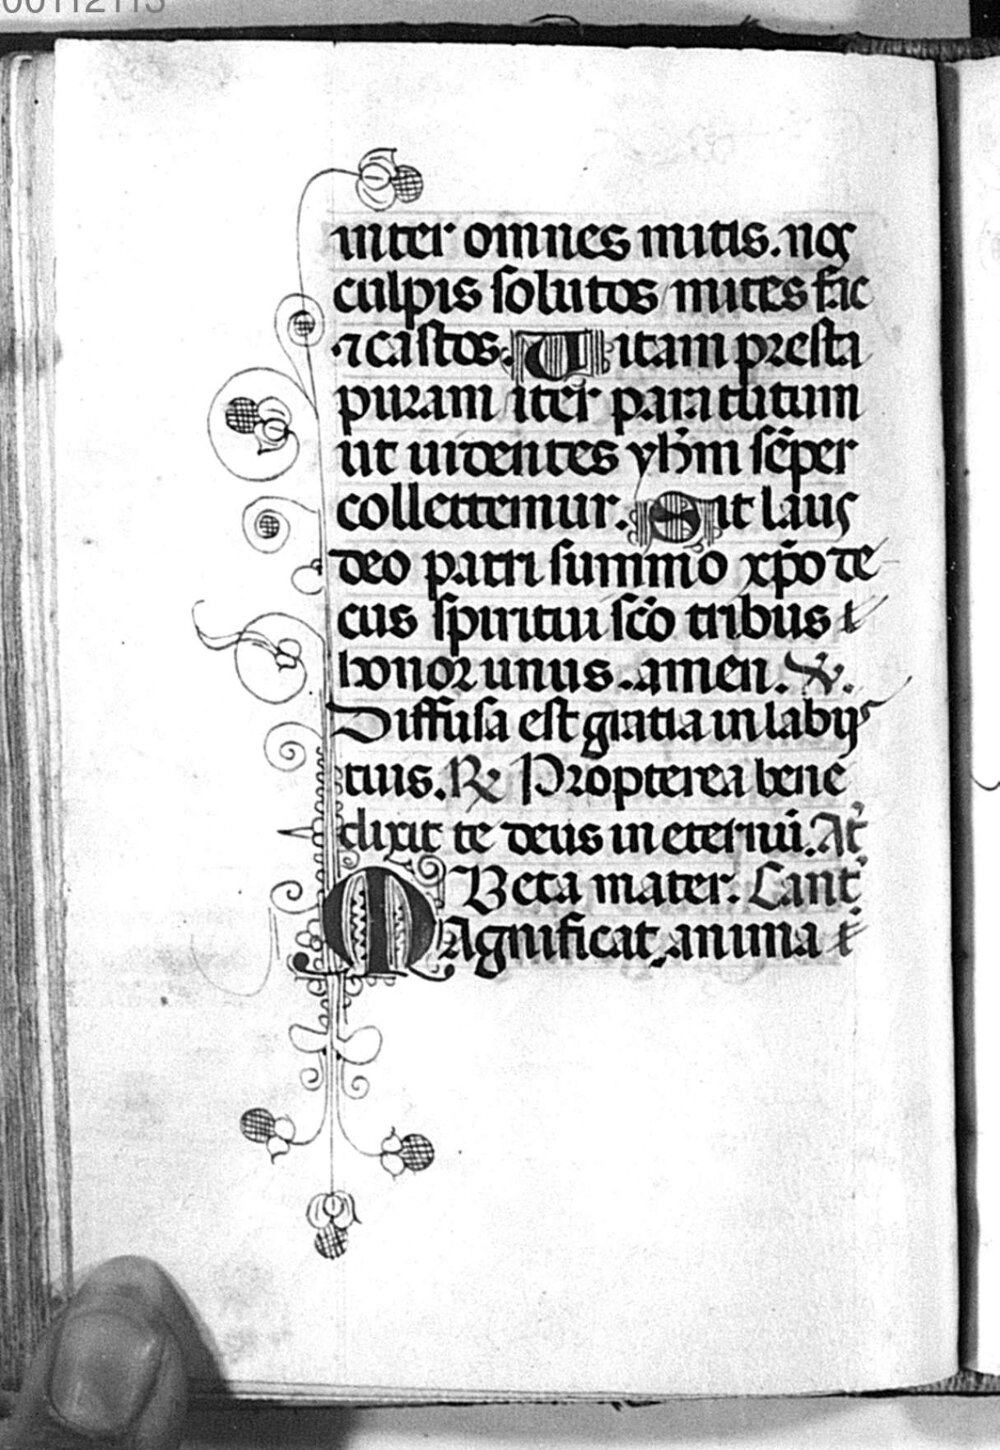 00112113
inter omnes mitis. nos
culpis solutos mites fac
⁊ castos. Vitam presta
puram iter para tutum
ut uidentes yhm̄ sēper
collettemur. Sit laus
deo patri summo xp̄o de
cus spiritui sc̄o tribus
honor unus. amen. ℣.
Diffusa est gratia in labijs
tuis. ℞ Propterea bene
dixit te deus in eternū. An̄
Beta mater. Cant̄
Magnificat anima